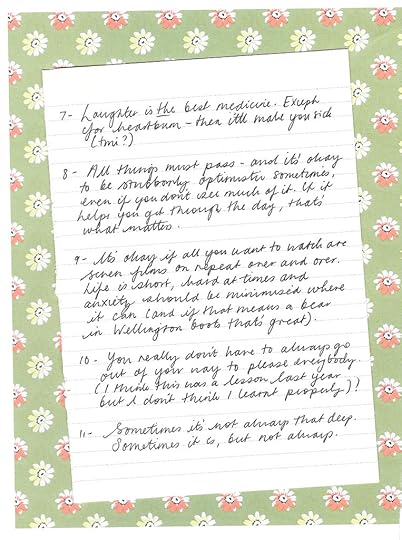 7- Laughter is the best medicine. Except
for heartburn - then it'll make you sick
(tmi?)
8- All things must pass - and it's okay
to be stubbornly optimistic sometimes,
even if you don't see much of it. If it
helps you get through the day, that's
what matters.
9- It's okay if all you want to watch are
seven films on repeat over and over.
Life is short, hard at times and
anxiety should be minimised where
it can (and if that means a bear
in Wellington boots that's great).
10- You really don't have to always go
out of your way to please everybody.
(I think this was a lesson last year
but I don't think I learnt properly)?
11- Sometimes it's not always that deep.
Sometimes it is, but not always.